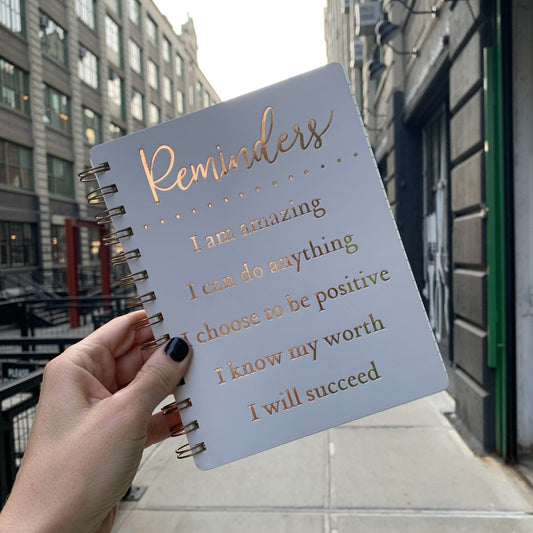 Reminders
I am amazing
I can do anything
I choose to be positive
I know my worth
I will succeed